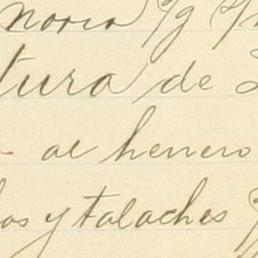 noria
tura de
al herrero
os y talaches